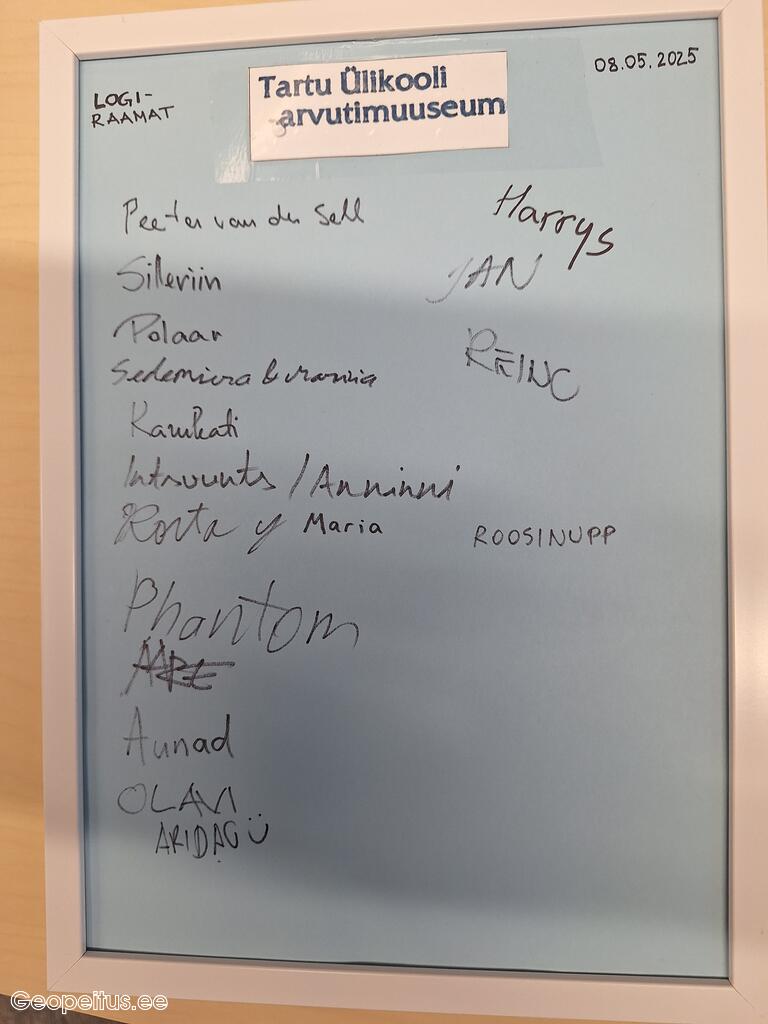 LOGI-
RAAMAT
Tartu Ülikooli
arvutimuuseum
08.05.2025
Peeter van der Sell
Harrys
Silleriin
JAN
Polaar
REINC
Kamkati
Intsuunts / Anninni
y Maria
ROOSINUPP
Phantom
Aunad
OLAVI
ARIDAG Ü
Geopeitus.ee